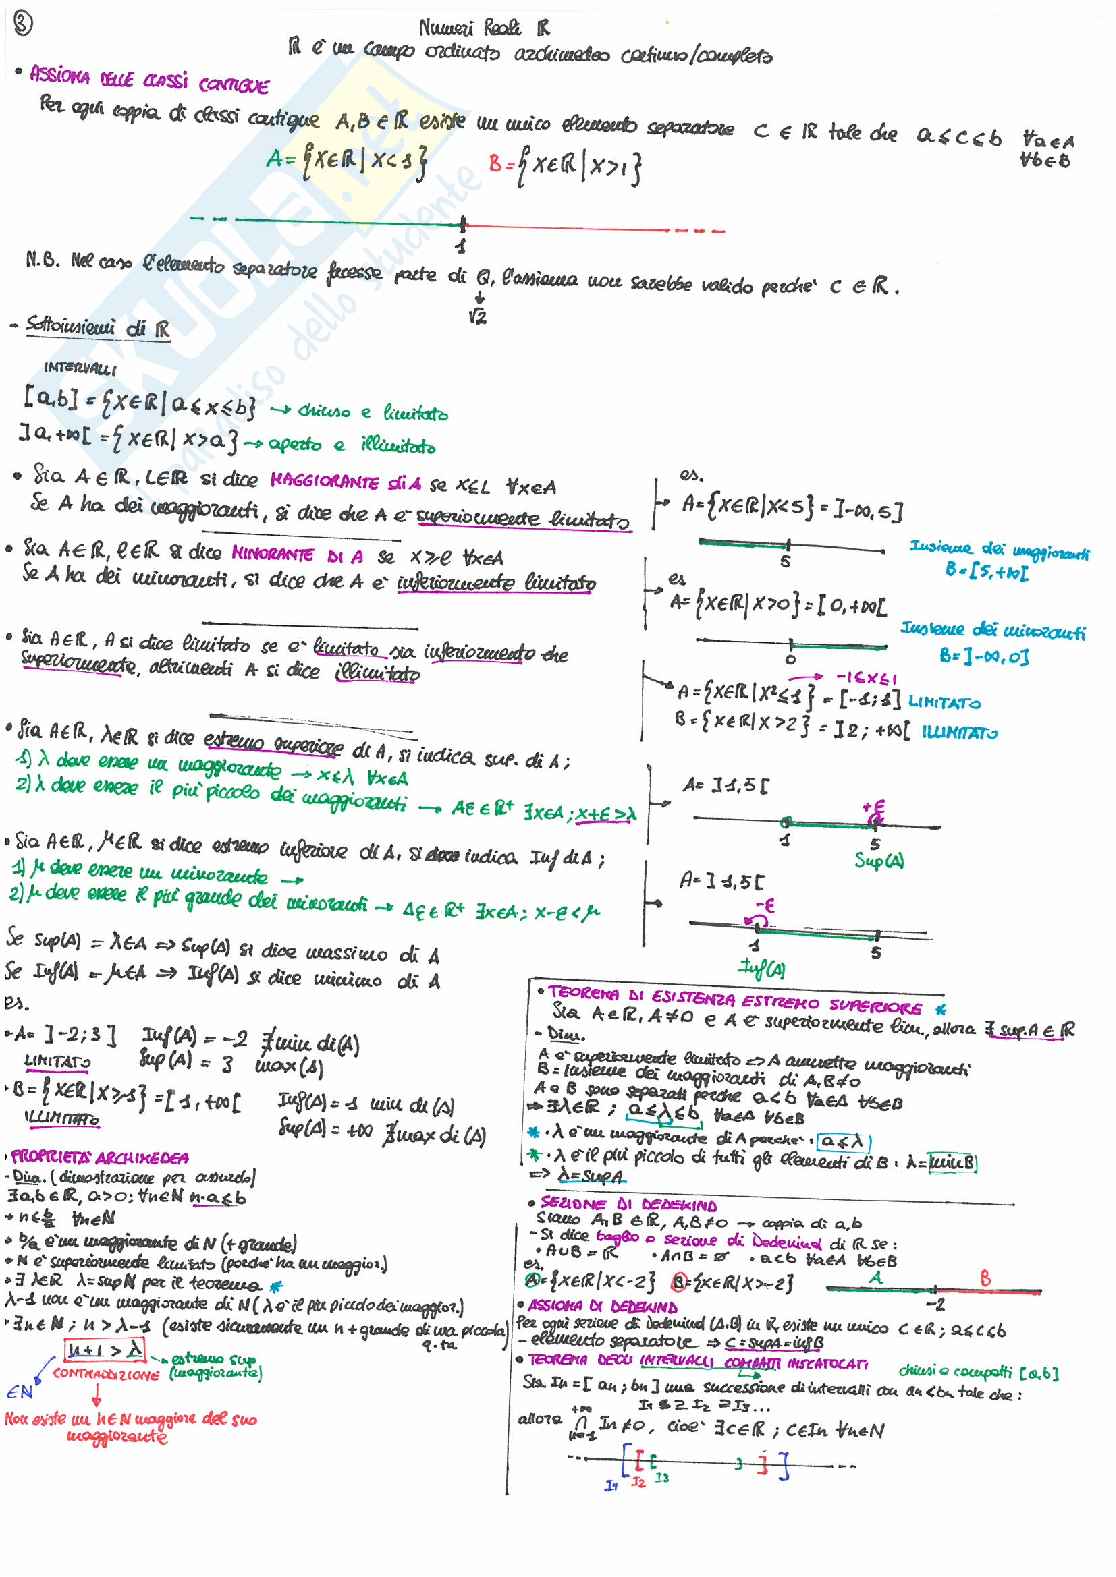 3
Numeri Reali ℝ
ℝ è un campo ordinato archimedeo continuo/completo
• ASSIOMA DELLE CLASSI CONTIGUE
Per ogni coppia di classi contigue A,B ∈ ℝ esiste un unico elemento separatore C ∈ ℝ tale che a ≤ c ≤ b ∀a∈A
∀b∈B
A={x∈ℝ|x<1} B={x∈ℝ|x>1}
1
N.B. Nel caso l'elemento separatore facesse parte di Q, l'assioma non sarebbe valido perché c ∈ ℝ.
↓
√2
- Sottoinsiemi di ℝ
INTERVALLI
[a,b] = {x∈ℝ|a≤x≤b} → chiuso e limitato
]a,+∞[ = {x∈ℝ|x>a} → aperto e illimitato
• Sia A∈ℝ, L∈ℝ si dice MAGGIORANTE di A se x≤L ∀x∈A
Se A ha dei maggioranti, si dice che A è superiormente limitato
es.
A={x∈ℝ|x<5} = ]-∞,5]
5
Insieme dei maggioranti
B=[5,+∞[
• Sia A∈ℝ, ℓ∈ℝ si dice MINORANTE DI A se x≥ℓ ∀x∈A
Se A ha dei minoranti, si dice che A è inferiormente limitato
es
A={x∈ℝ|x>0}=[0,+∞[
Insieme dei minoranti
0
B=]-∞,0]
• Sia A∈ℝ, A si dice limitato se è limitato sia inferiormente che
superiormente, altrimenti A si dice illimitato
→ -1≤x≤1
A={x∈ℝ|x²≤1} = [-1;1] LIMITATO
B={x∈ℝ|x>2} = ]2;+∞[ ILLIMITATO
• Sia A∈ℝ, λ∈ℝ si dice estremo superiore di A, si indica sup. di A;
1) λ deve essere un maggiorante → x≤λ ∀x∈A
2) λ deve essere il più piccolo dei maggioranti → ∀ε∈ℝ⁺ ∃x∈A; x+ε>λ
A= ]1,5[
+ε
1 5
Sup(A)
• Sia A∈ℝ, μ∈ℝ si dice estremo inferiore di A, si indica Inf di A;
1) μ deve essere un minorante →
2) μ deve essere il più grande dei minoranti → ∀ε∈ℝ⁺ ∃x∈A; x-ε<μ
A= ]1,5[
-ε
1 5
Inf(A)
Se Sup(A) = λ∈A ⇒ Sup(A) si dice massimo di A
Se Inf(A) = μ∈A ⇒ Inf(A) si dice minimo di A
es.
• A= ]-2;3] Inf(A) = -2 ∄min di(A)
LIMITATO Sup(A) = 3 max(A)
• B={x∈ℝ|x≥1}=[1,+∞[ Inf(A)=1 min di(A)
ILLIMITATO Sup(A)=+∞ ∄max di(A)
• PROPRIETÀ ARCHIMEDEA
- Dim. (dimostrazione per assurdo)
∃a,b∈ℝ, a>0; ∀n∈N n·a≤b
• n≤b/a ∀n∈N
• b/a è un maggiorante di N (+ grande)
• N è superiormente limitato (perché ha un maggior.)
• ∃ λ∈ℝ λ=supN per il teorema *
λ-1 non è un maggiorante di N (λ è il più piccolo dei maggior.)
• ∃n∈N; n>λ-1 (esiste sicuramente un n + grande di una piccola
q.tà
n+1>λ → estremo sup
CONTRADDIZIONE (maggiorante)
∈N
Non esiste un n∈N maggiore del suo
maggiorante
• TEOREMA DI ESISTENZA ESTREMO SUPERIORE *
Sia A∈ℝ, A≠0 e A è superiormente lim., allora ∃ sup.A∈ℝ
- Dim.
A è superiormente limitato => A ammette maggioranti
B=Insieme dei maggioranti di A, B≠0
A e B sono separati perché a<b ∀a∈A ∀b∈B
⇒∃λ∈ℝ; a≤λ≤b ∀a∈A ∀b∈B
* • λ è un maggiorante di A perché: a≤λ
* • λ è il più piccolo di tutti gli elementi di B: λ=minB
=> λ=SupA
• SEZIONE DI DEDEKIND
Siano A,B∈ℝ, A,B≠0 → coppia di a,b
- Si dice taglio o sezione di Dedekind di ℝ se:
• A∪B=ℝ • A∩B=∅ • a<b ∀a∈A ∀b∈B
es.
A={x∈ℝ|x<-2} B={x∈ℝ|x>-2}
A B
-2
• ASSIOMA DI DEDEKIND
Per ogni sezione di Dedekind (A,B) in ℝ, esiste un unico c∈ℝ; a≤c≤b
- elemento separatore ⇒ c=supA=infB
• TEOREMA DEGLI INTERVALLI COMPATTI INSCATOLATI
chiusi e compatti [a,b]
Sia In=[an;bn] una successione di intervalli con an<bn tale che:
I1⊇I2⊇I3...
allora ⋂ In≠0, cioè ∃c∈ℝ; c∈In ∀n∈N
+∞
n=1
I1 I2 I3